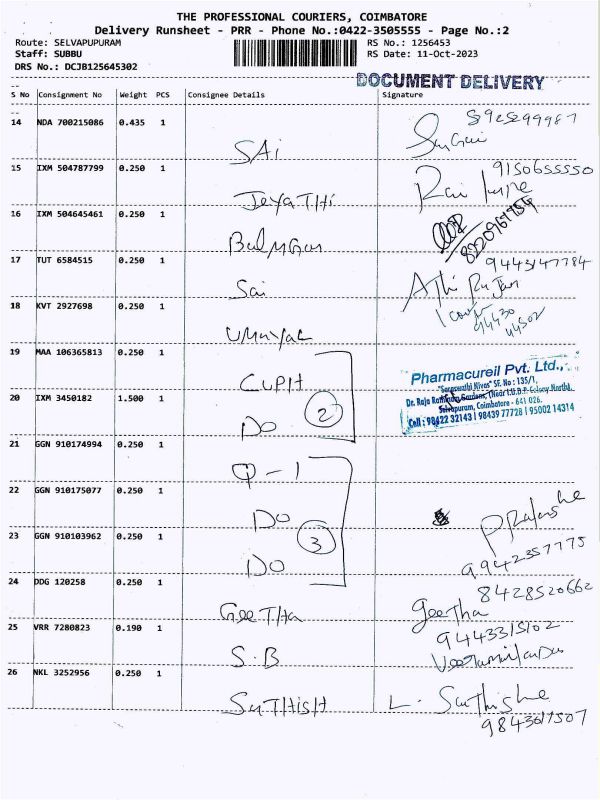 THE PROFESSIONAL COURIERS, COIMBATORE
Delivery Runsheet - PRR - Phone No.:0422-3505555 - Page No.:2
Route: SELVAPUPURAM RS No.: 1256453
Staff: SUBBU RS Date: 11-Oct-2023
DRS No.: DCJB125645302
DOCUMENT DELIVERY
S No Consignment No Weight PCS Consignee Details Signature
14 NDA 700215086 0.435 1
SAi
15 IXM 504787799 0.250 1 9150655550
JeyaTHi
16 IXM 504645461 0.250 1
17 TUT 6584515 0.250 1 9443147784
Sai
18 KVT 2927698 0.250 1
UMaYaL
19 MAA 106365813 0.250 1
Pharmacureil Pvt. Ltd.,
"Saraswathi Nivas" SF. No : 135/1,
Dr. Raja Rathinam Gardens, (Near I.O.B.P. Colony North),
Selvapuram, Coimbatore - 641 026.
Cell : 98422 32143 | 98439 77728 | 95002 14314
20 IXM 3450182 1.500 1
2
Do
21 GGN 910174994 0.250 1
22 GGN 910175077 0.250 1
Do
23 GGN 910103962 0.250 1
3
Do 9942357775
24 DDG 120258 0.250 1 8428520662
GeeTHa geetha
25 VRR 7280823 0.190 1 9443315102
S.B
26 NKL 3252956 0.250 1
SaTHisH L. Sathishe
9843617507